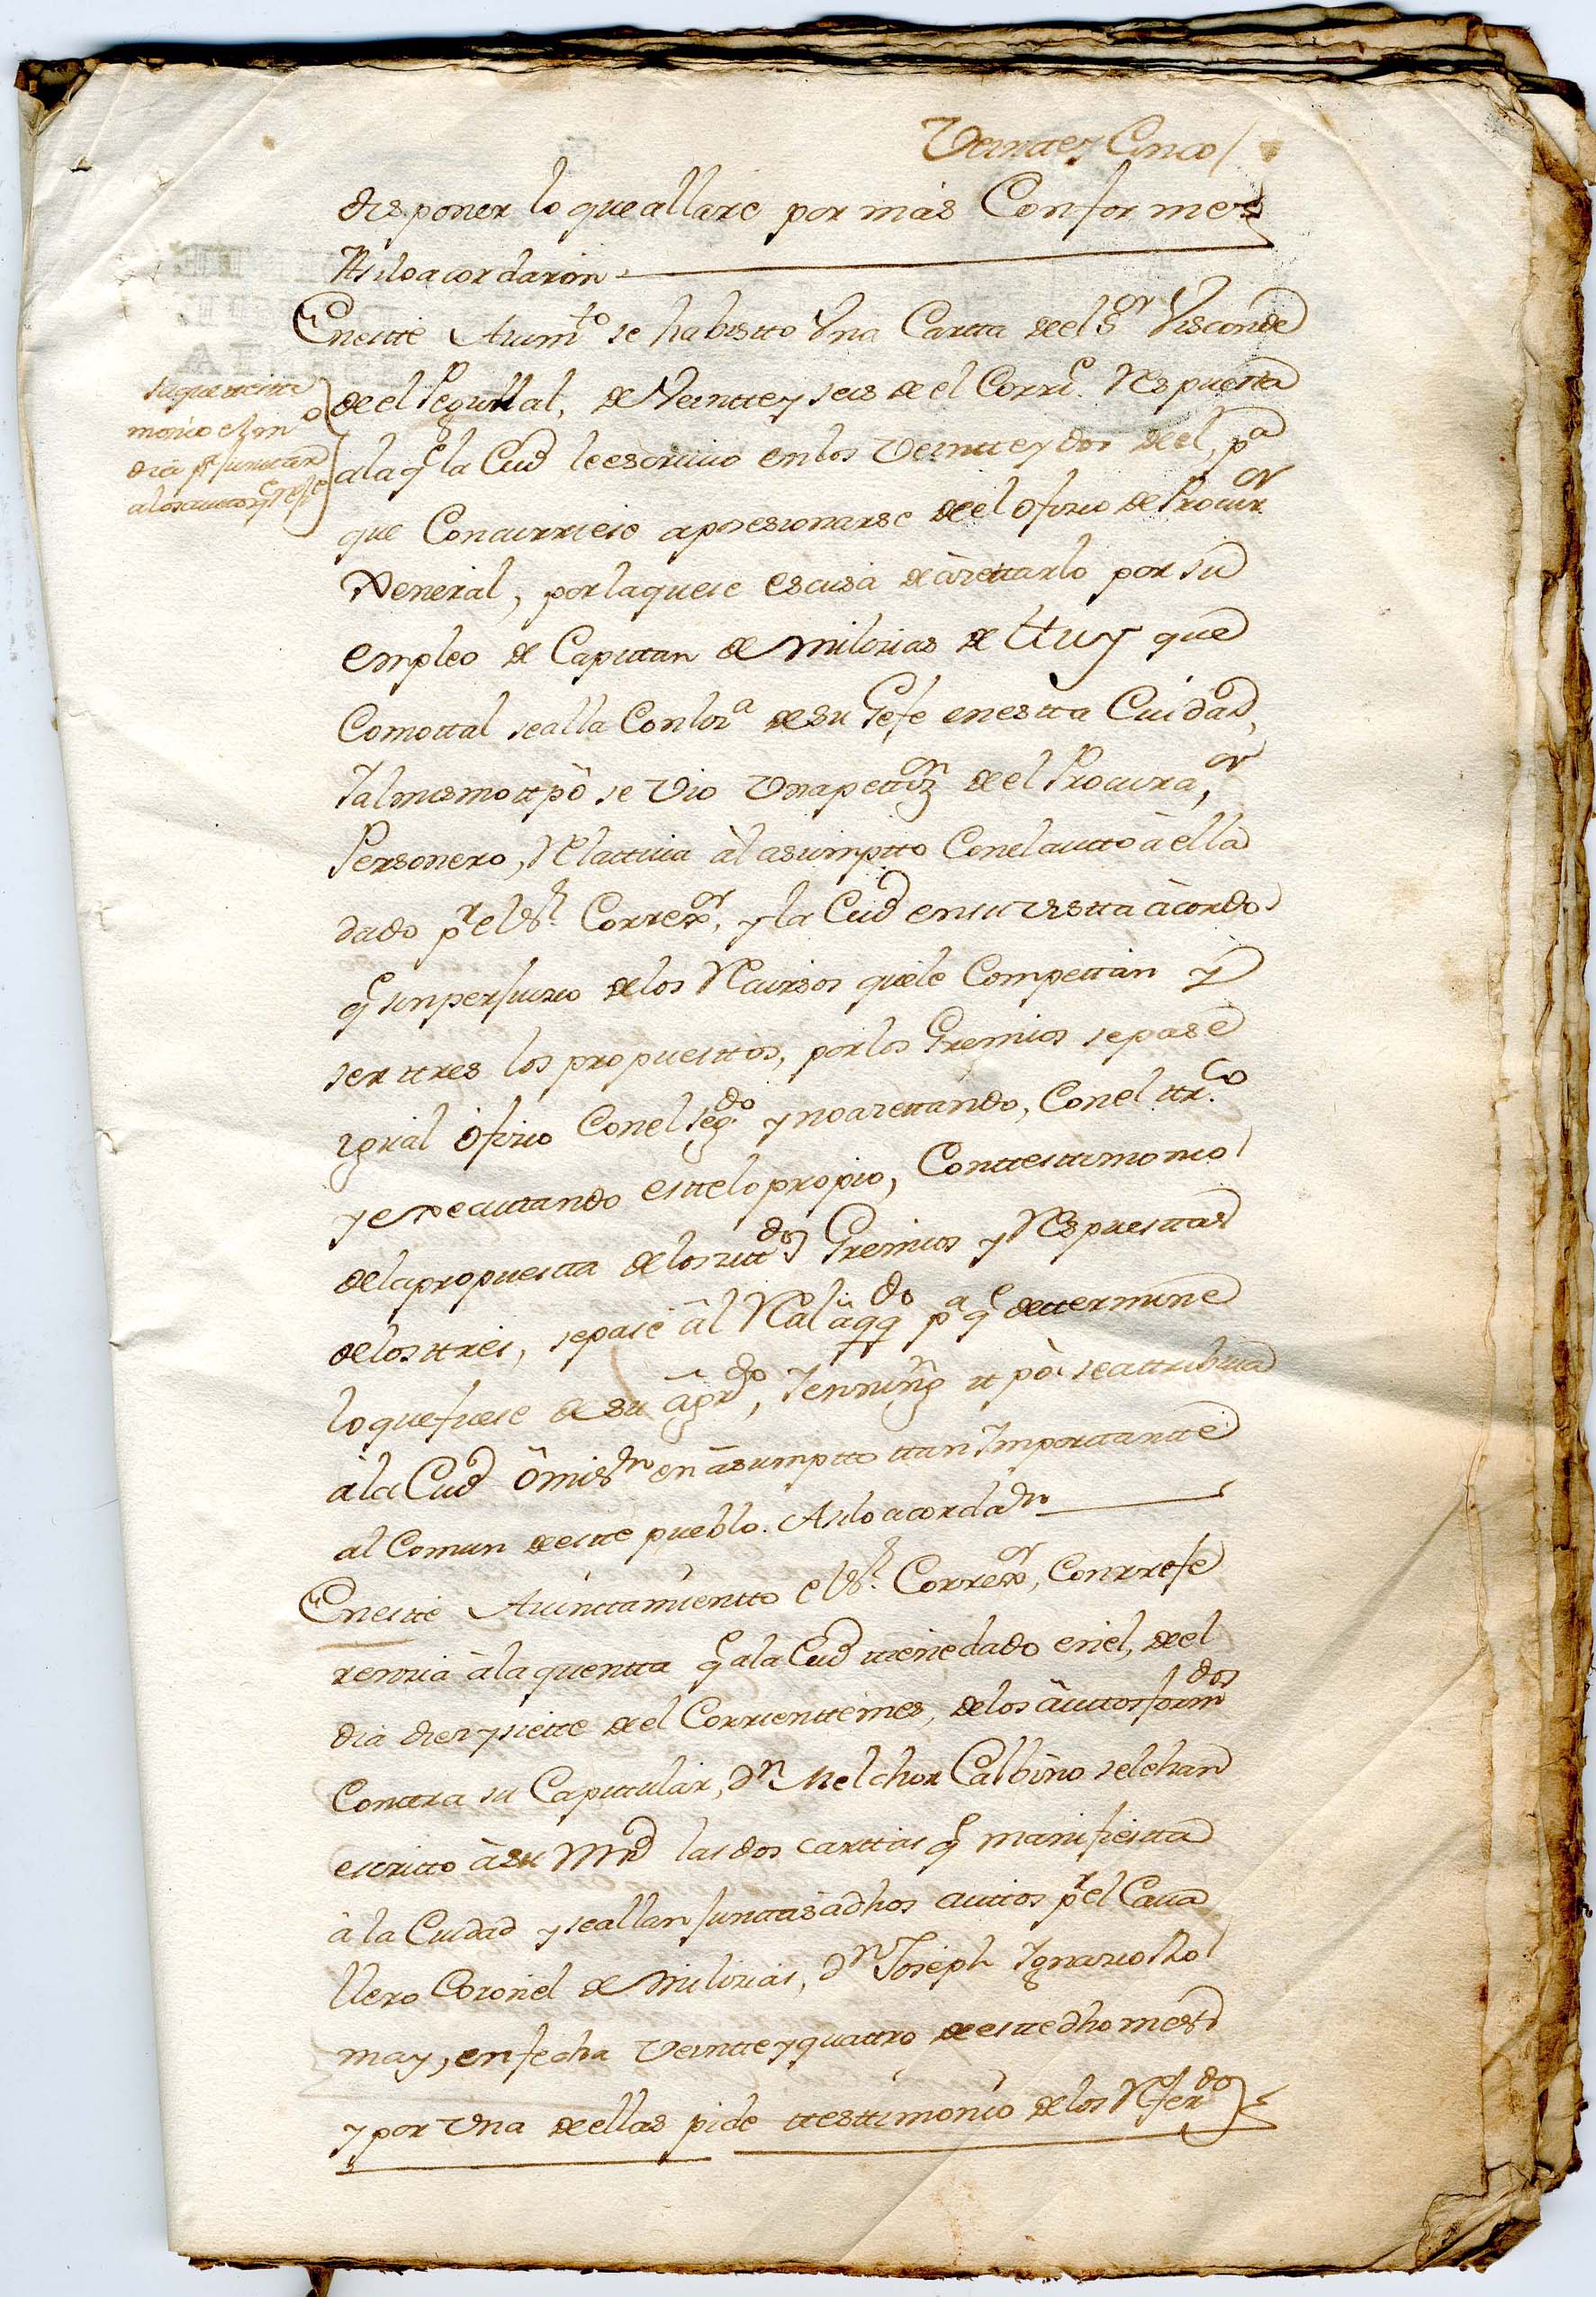 Veintte y Cinco /
disponer lo que allare por más Conforme
Asilo acordaron
En estte Aium.to se ha bistto Una Cartta de el S.or Visconde
de el Pegullal, de Veintte y seis de el Corr.te Respuesta
a la q.e la Ciud le escriuio en los Veintte y dos de el, p.a
que Concurriese aposesionarse de el ofizio de Procur.or
General, por la que se escusa de àzettarlo por su
empleo de Capittan de Milizias de ttuy que
Como ttal se alla Con liz.a de su Gefe en estta Ciudad,
Y al mismo ttpò se Vio Una pettiz.on de el Procura.or,
Personero, Relattiua àl asumptto Con el autto à ella
dado p.r el S.r Corre.or, y la Ciud en su vistta àcordo
q.e sin perjuizio de los Recursos que le Compettan y
ser ttres los propuesttos, por los Gremios se pase
igual ofizio Con el seg.do y no azettando, Con el tter.co
y executtando estte lo propio, Con ttesttimonio
de la propuestta de los zitt.dos Gremios y Respuesttas
de los ttres, se pase àl Real àqq.do p.a q.e dettermine
lo que fuese de su àgr.do, Y en ning.n ttpò se attribuia
à la Ciud òmis.on en àsumptto ttan Importtantte
al Comun de estte pueblo. Asilo acordar.on
En estte Aiunttamientto el S.r Corre.or, Con rrefe
renzia à la quentta q.e a la Ciud ttiene dado en el, de el
dia diez y siette de el Corrientte mes, de los àuttos form.dos
Conttra su Capittular, D.n Melchor Calbino se le han
escritto à su Mrd las dos carttas q.e manifiestta
à la Ciudad y se allan junttas à dhos auttos p.r el Caua
llero Coronel de Milizias, D.n Joseph Ignazio Ro
may, en fecha Veintte y quattro de estte dho mes
y por Una de ellas pide ttesttimonio de los Refer.dos
Saque ttestti
monio el m.o
dia p.a junttar
a los auttos q.e refe